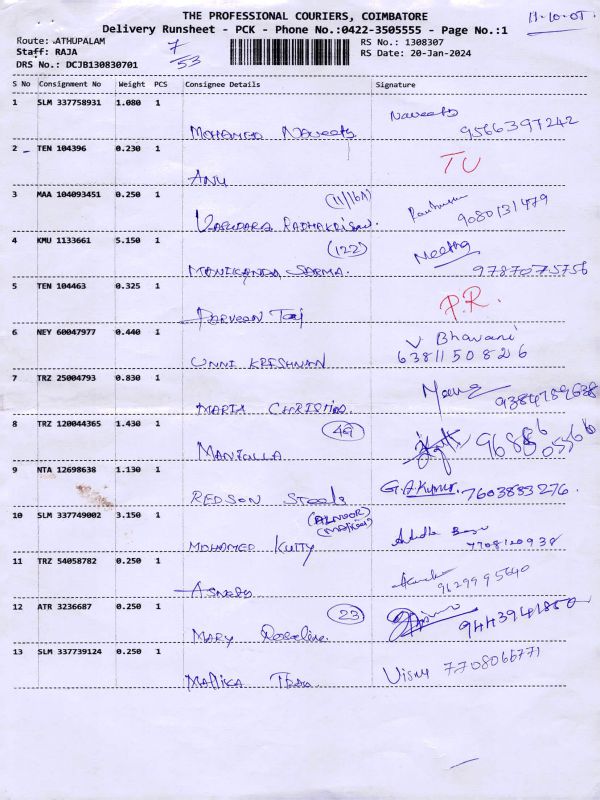 THE PROFESSIONAL COURIERS, COIMBATORE
11-10-05
Delivery Runsheet - PCK - Phone No.:0422-3505555 - Page No.:1
Route: ATHUPALAM
7/53
RS No.: 1308307
Staff: RAJA
RS Date: 20-Jan-2024
DRS No.: DCJB130830701
S No Consignment No Weight PCS Consignee Details Signature
1 SLM 337758931 1.080 1
MOHAMED 9566397242
2 - TEN 104396 0.230 1
ANU
3 MAA 104093451 0.250 1
(11/16A) 9080131479
VASUDARA RADHAKRISAN.
4 KMU 1133661 5.150 1
(122) Neetha
MONIKANDA SARMA. 9787075756
5 TEN 104463 0.325 1
P.R.
PARVEEN Taj
6 NEY 60047977 0.440 1
V Bhavani
UNNI KRESHNAN 6381150826
7 TRZ 25004793 0.830 1
MARIA CHRISTINA. 9384759638
8 TRZ 120044365 1.430 1
(49)
MANJULLA
9 NTA 12698638 1.130 1
G.A.Kumar. 7603883276.
REDSON Steels
10 SLM 337749002 3.150 1
MOHAMED KUTTY 7708120938
11 TRZ 54058782 0.250 1
9629995640
12 ATR 3236687 0.250 1
(23)
MARY 9443941850
13 SLM 337739124 0.250 1
MALLIKA 7708066771